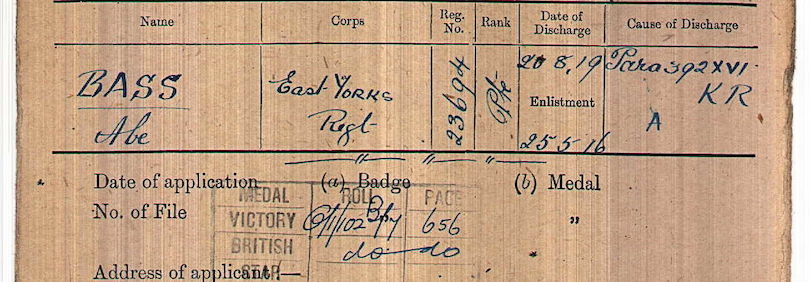 Name Corps Reg. No. Rank Date of Discharge Cause of Discharge
BASS East Yorks 23694 Pte 20 8.19 Para 392 XVI.
Enlistment K R
Abe Regt 25 5 16 A
" " "
Date of application (a) Badge (b) Medal
No. of File "
MEDAL ROLL PAGE
VICTORY 656
BRITISH do do
STAR
Address of applicant:—